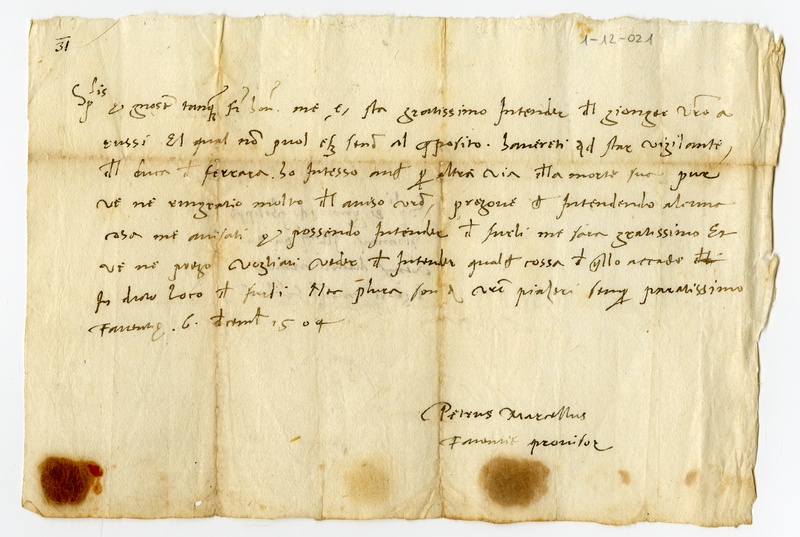 31
1-12-021
tanq̃ fr̃ hon. me, e, sta gratissimo Intender dl gionger vr̃o a
russi El qual nõ puol senõ al p̱posito. havereti star vigilante,
dl duca d ferrara. ho Intesso p altra via dlla morte sua pur
ve ne rengratio molto dl aviso vr̃o, pregove Intendendo alcuna
cosa me avisati possendo Intender d me sara gratissimo Et
ve ne prego vogliati veder d Intender qualq̃ cossa d q̃llo accade
In dicto loco d Nec plura son a vr̃i piaceri semp paratissimo
Faventie. 6. dcemb 1504
Petrus Marcellus
Faventie provisor